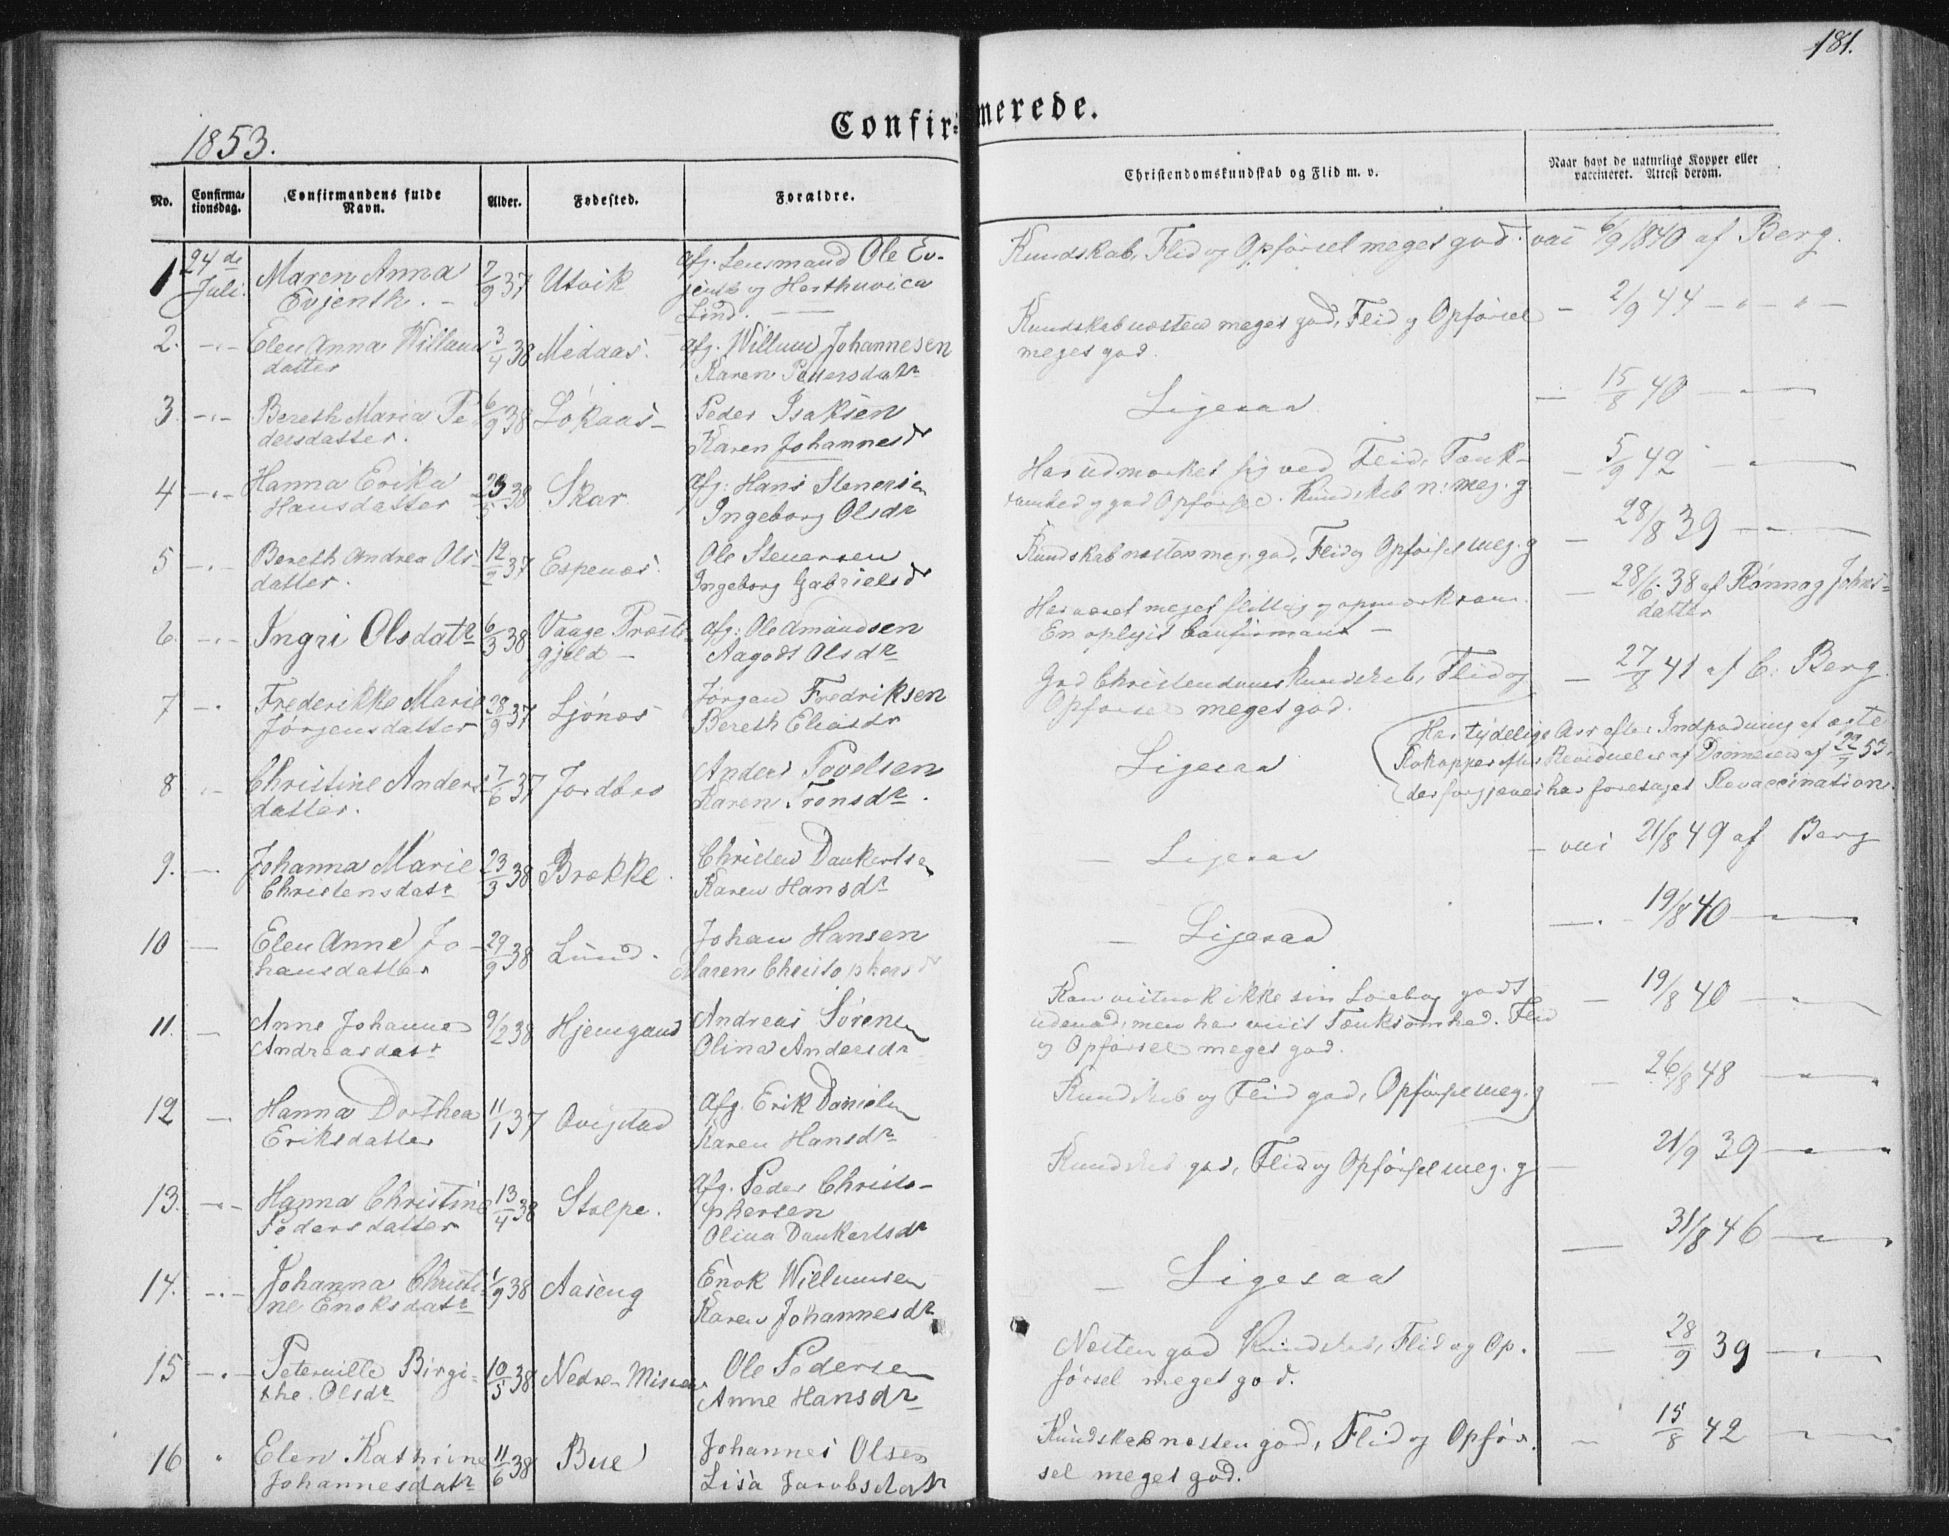 181.
Confirmerede.
1853.
No.
Confirmationsdag.
Confirmandens fulde Navn.
Alder.
Fødested.
Forældre.
Christendomskundskab og Flid m. v.
Naar havt de naturlige Kopper eller vaccineret. Attest derom.
1 24de Juli. Maren Anna 7/9 37 Utvik afg. Lensmand Ole Ev-
Evjenth. jenth og
Lind.
Kundskab, Flid og Opførsel meget god. vac 6/9 1840 af Berg.
2. Elen Anna Willums 3/4 38 Medaas. afg. Willum Johannesen
datter Karen Pedersdatr
Kundskab næsten meget god, Flid og Opførsel — 2/9 44 — " — " —
meget god.
3. Bereth Maria Pe 6/9 38 Løkaas Peder Isaksen
dersdatter. Karen Johannesdr
Ligesaa — 15/8 40 — " —
4 Hanna Erika 38 Skar afg: Hans Stenersen
Hansdatter Ingeborg Olsdr
Har udmærket sig ved Flid, Tænk- — 5/9 42 — " —
somhed og god Opførsel. Kundskab n: meg. g
5 Bereth Andrea Ols 37 Espenes. Ole Stenersen
datter. Ingeborg Gabrielsdr
Kundskab næsten meg. god, Flid og Opførsel meg. g — 28/8 39 — " —
6. Ingri Olsdatr 6/3 38 Vaage Præste afg: Ole Amundsen
gjeld — Aagodt Olsdr
Har været meget flittig og opmærksom. — 28/6 38 af Rønnog Johns-
datter
En oplyst Confirmant —
7 Frederikke Marie 28/9 37 Ljønes Jørgen Fredriksen
Jørgensdatter Bereth Eliasdr
God Christendoms Kundskab, Flid og — 27/8 41 af C. Berg.
Opførsel meget god.
8 Christine Anders 7/6 37 Jordbro Anders Povelsen
datter. Karen Tronsdr.
Ligesaa
Har tydelige Arr efter Indpodning af ægte
Kokopper efter af 22/7 53.
der forgjæves har foretaget Revaccination.
9. Johanna Marie 23/3 38 Brække. Christen Dankertsen
Christensdatr Karen Hansdr
— Ligesaa — vac 21/8 49 af Berg
10 Elen Anne Jo- 29/9 38 Lund. Johan Hansen
hansdatter Maren Christophersdr
— Ligesaa — 19/8 40 — " —
11. Anne Johanna 9/2 38 Hjemgaard Andreas Sørensen
Andreasdatr Olina Andersdr
Kan vistnok ikke sin Lærebog godt — 19/8 40 — " —
udenad, men har viist Tænksomhed. Flid
og Opførsel meget god.
12 Hanna Dorthea 11/1 37 Qvigstad afg. Erik Danielsen
Eriksdatter Karen Hansdr
Kundskab og Flid god, Opførsel meg. g — 26/8 48 — " —
13. Hanna Christine 13/4 38 Stolpe. afg. Peder Christo-
Pedersdatter phersen
Olina Dankertsdr
Kundskab god, Flid og Opførsel meg. g — 21/9 39 — " —
14. Johanna Christi- 1/9 38 Aaseng Enok Willumsen
ne Enoksdatr Karen Johannesdr.
— Ligesaa — 31/8 46 — " —
15 Peternille Birgi- 10/5 38 Nedre Misvær Ole Pedersen
the Olsdr Anne Hansdr
Næsten god Kundskab, Flid og Op. — 28/9 39 — " —
førsel meget god.
16 " Elen Kathrine 11/6 38 Bue Johannes Olsen
Johannesdatr Lisa Jacobsdatr
Kundskab næsten god, Flid og Opfør. — 15/8 42 " —
sel meget god.